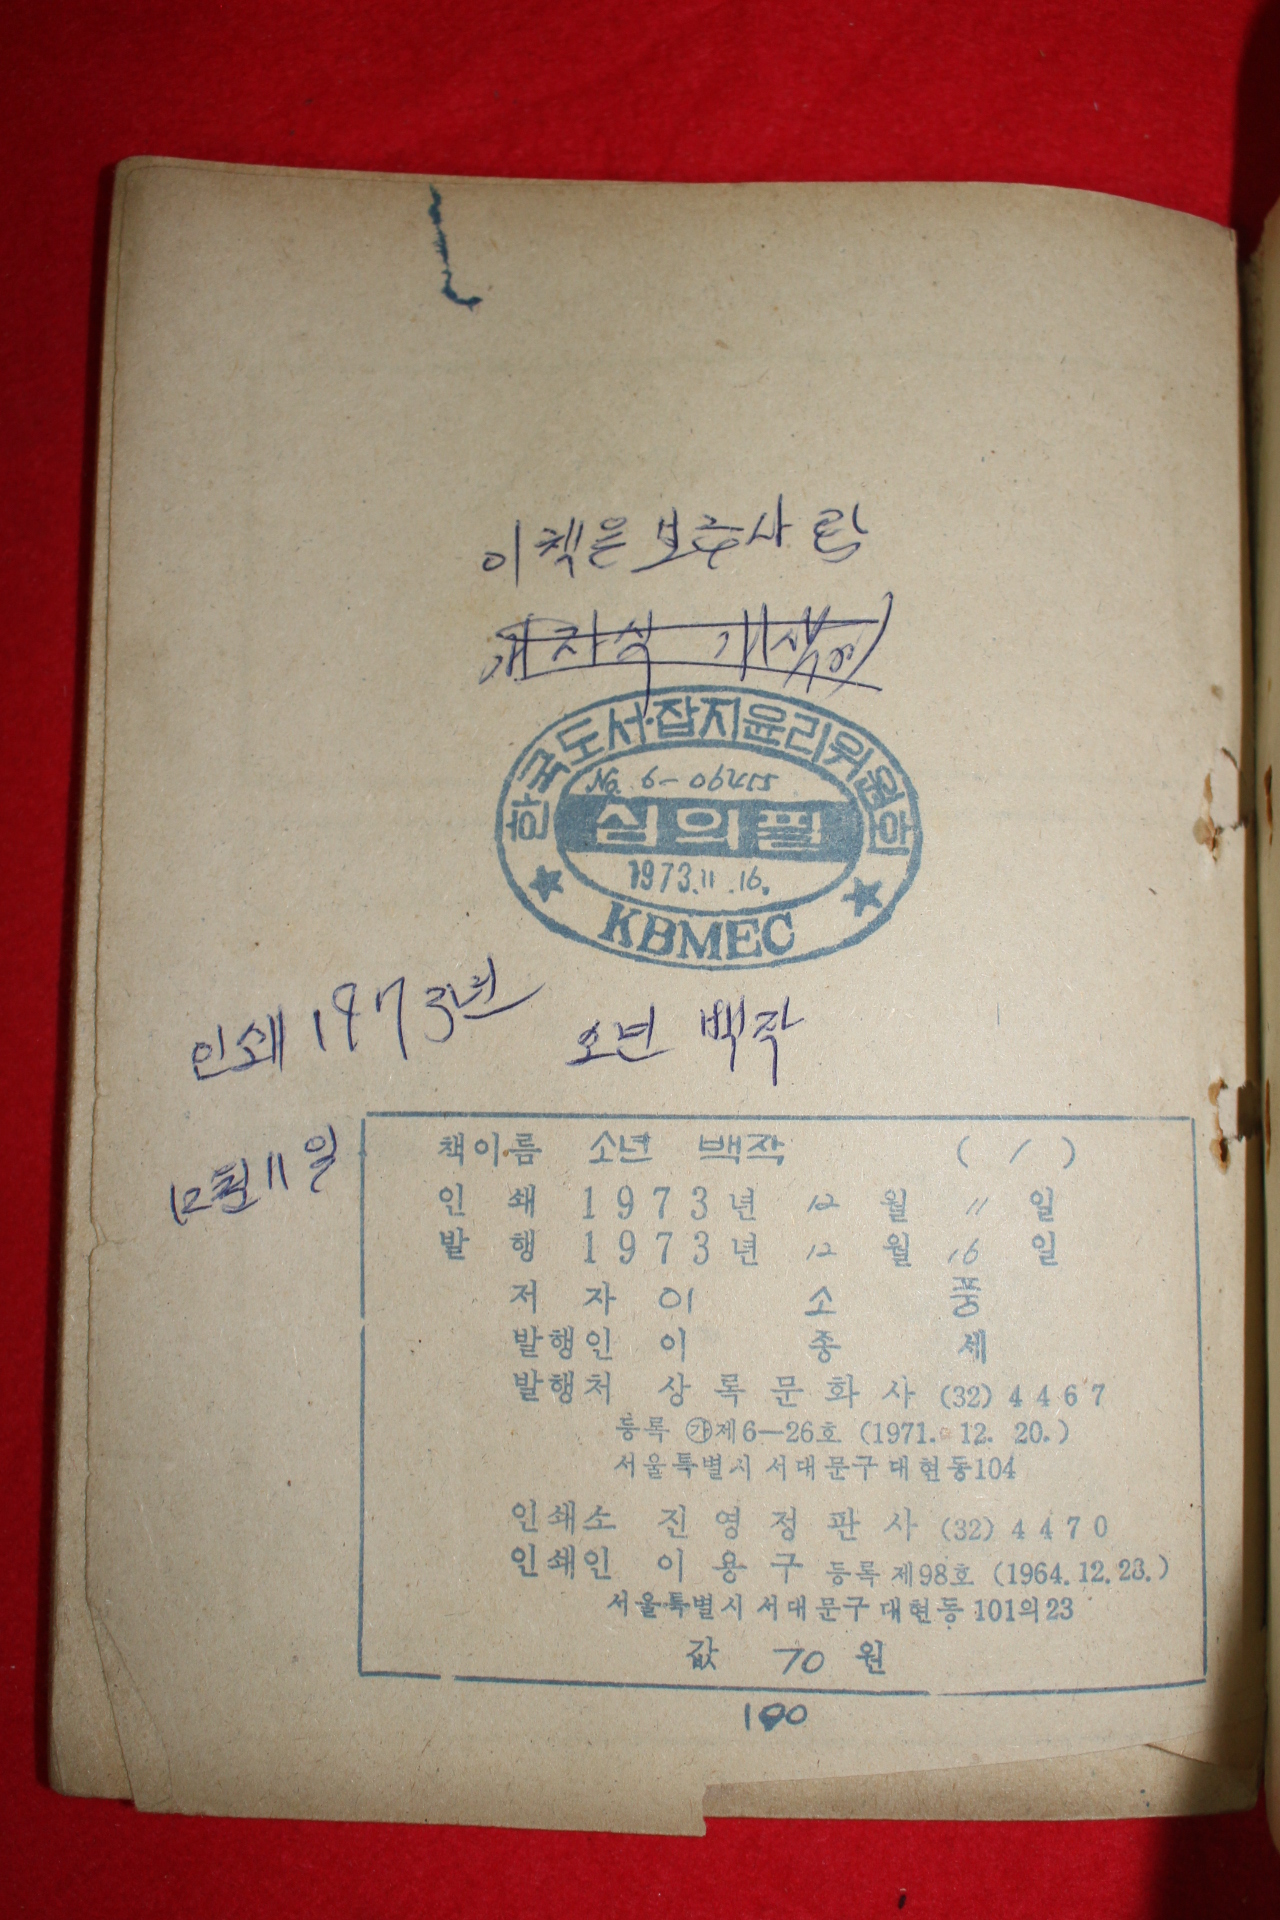 이 책은 보주사 람
개자식 개새
한국도서·잡지윤리위원회
No. 6-06455
심의필
1973.11.16.
KBMEC
인쇄 1973년
소년 백작
12월 11일
책이름 소년 백작 (1)
인 쇄 1973년 12 월 11 일
발 행 1973년 12 월 16 일
저 자 이 소 풍
발행인 이 종 세
발행처 상록문화사 (32) 4467
등록 ㉮제6-26호 (1971. 12. 20.)
서울특별시 서대문구 대현동104
인쇄소 진영정판사 (32) 4470
인쇄인 이용구 등록 제98호 (1964.12.23.)
서울특별시 서대문구 대현동 101의23
값 70 원
100